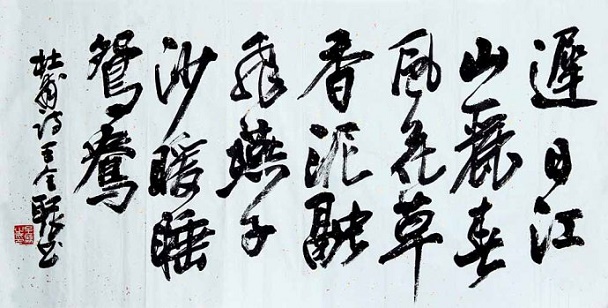 遲日江
山麗春
風花草
香泥融
飛燕子
沙暖睡
鴛鴦
杜甫詩